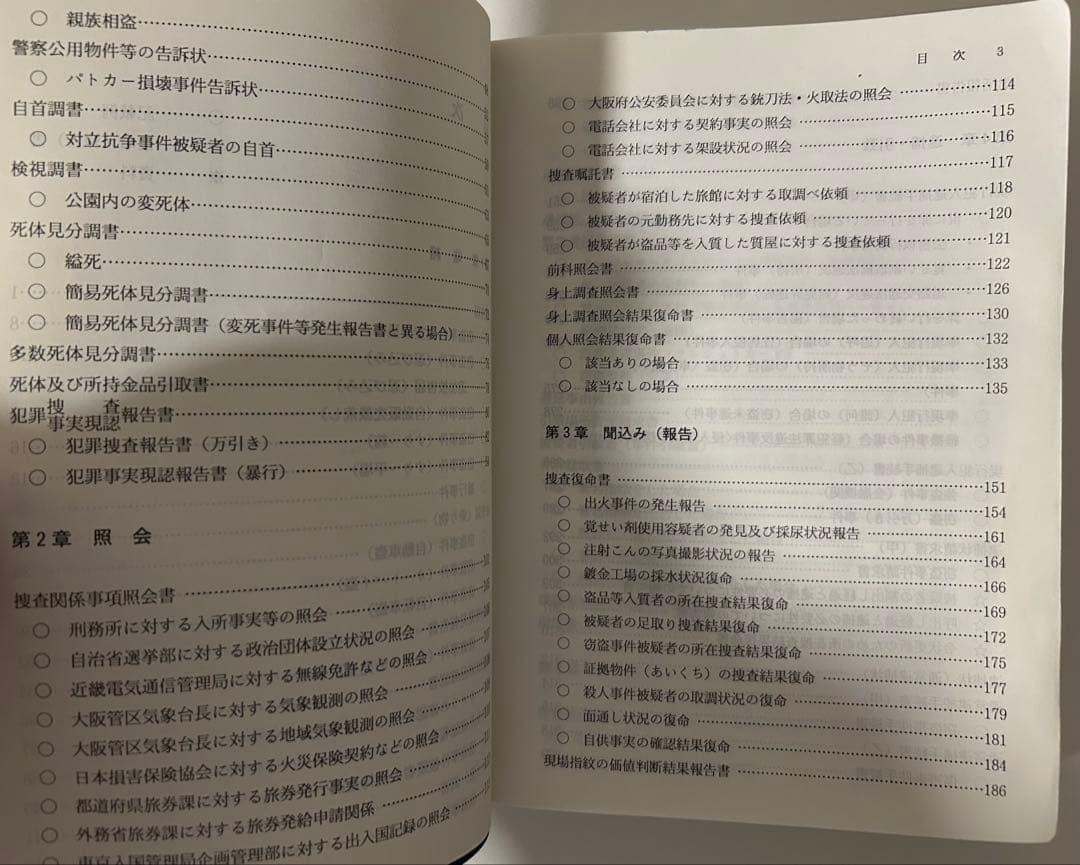 ○ 親族相盗
警察公用物件等の告訴状
○ パトカー損壊事件告訴状
自首調書
○ 対立抗争事件被疑者の自首
検視調書
○ 公園内の変死体
死体見分調書
○ 縊死
○ 簡易死体見分調書
○ 簡易死体見分調書（変死事件等発生報告書と異る場合）
多数死体見分調書
死体及び所持金品引取書
犯罪捜査事実現認報告書
○ 犯罪捜査報告書（万引き）
○ 犯罪事実現認報告書（暴行）
第2章 照会
捜査関係事項照会書
○ 刑務所に対する入所事実等の照会
○ 自治省選挙部に対する政治団体設立状況の照会
○ 近畿電気通信管理局に対する無線免許などの照会
○ 大阪管区気象台長に対する気象観測の照会
○ 大阪管区気象台長に対する地域気象観測の照会
○ 日本損害保険協会に対する火災保険契約などの照会
○ 都道府県旅券課に対する旅券発行事実の照会
○ 外務省旅券課に対する旅券発給申請関係
○ 東京入国管理局企画管理部に対する出入国記録の照会
目次 3
○ 大阪府公安委員会に対する銃刀法・火取法の照会 114
○ 電話会社に対する契約事実の照会 115
○ 電話会社に対する架設状況の照会 116
捜査嘱託書 117
○ 被疑者が宿泊した旅館に対する取調べ依頼 118
○ 被疑者の元勤務先に対する捜査依頼 120
○ 被疑者が盗品等を入質した質屋に対する捜査依頼 121
前科照会書 122
身上調査照会書 126
身上調査照会結果復命書 130
個人照会結果復命書 132
○ 該当ありの場合 133
○ 該当なしの場合 135
第3章 聞込み（報告）
捜査復命書 151
○ 出火事件の発生報告 154
○ 覚せい剤使用容疑者の発見及び採尿状況報告 161
○ 注射こんの写真撮影状況の報告 164
○ 鍍金工場の採水状況復命 166
○ 盗品等入質者の所在捜査結果復命 169
○ 被疑者の足取り捜査結果復命 172
○ 窃盗事件被疑者の所在捜査結果復命 175
○ 証拠物件（あいくち）の捜査結果復命 177
○ 殺人事件被疑者の取調状況の復命 179
○ 面通し状況の復命 181
○ 自供事実の確認結果復命 184
現場指紋の価値判断結果報告書 186